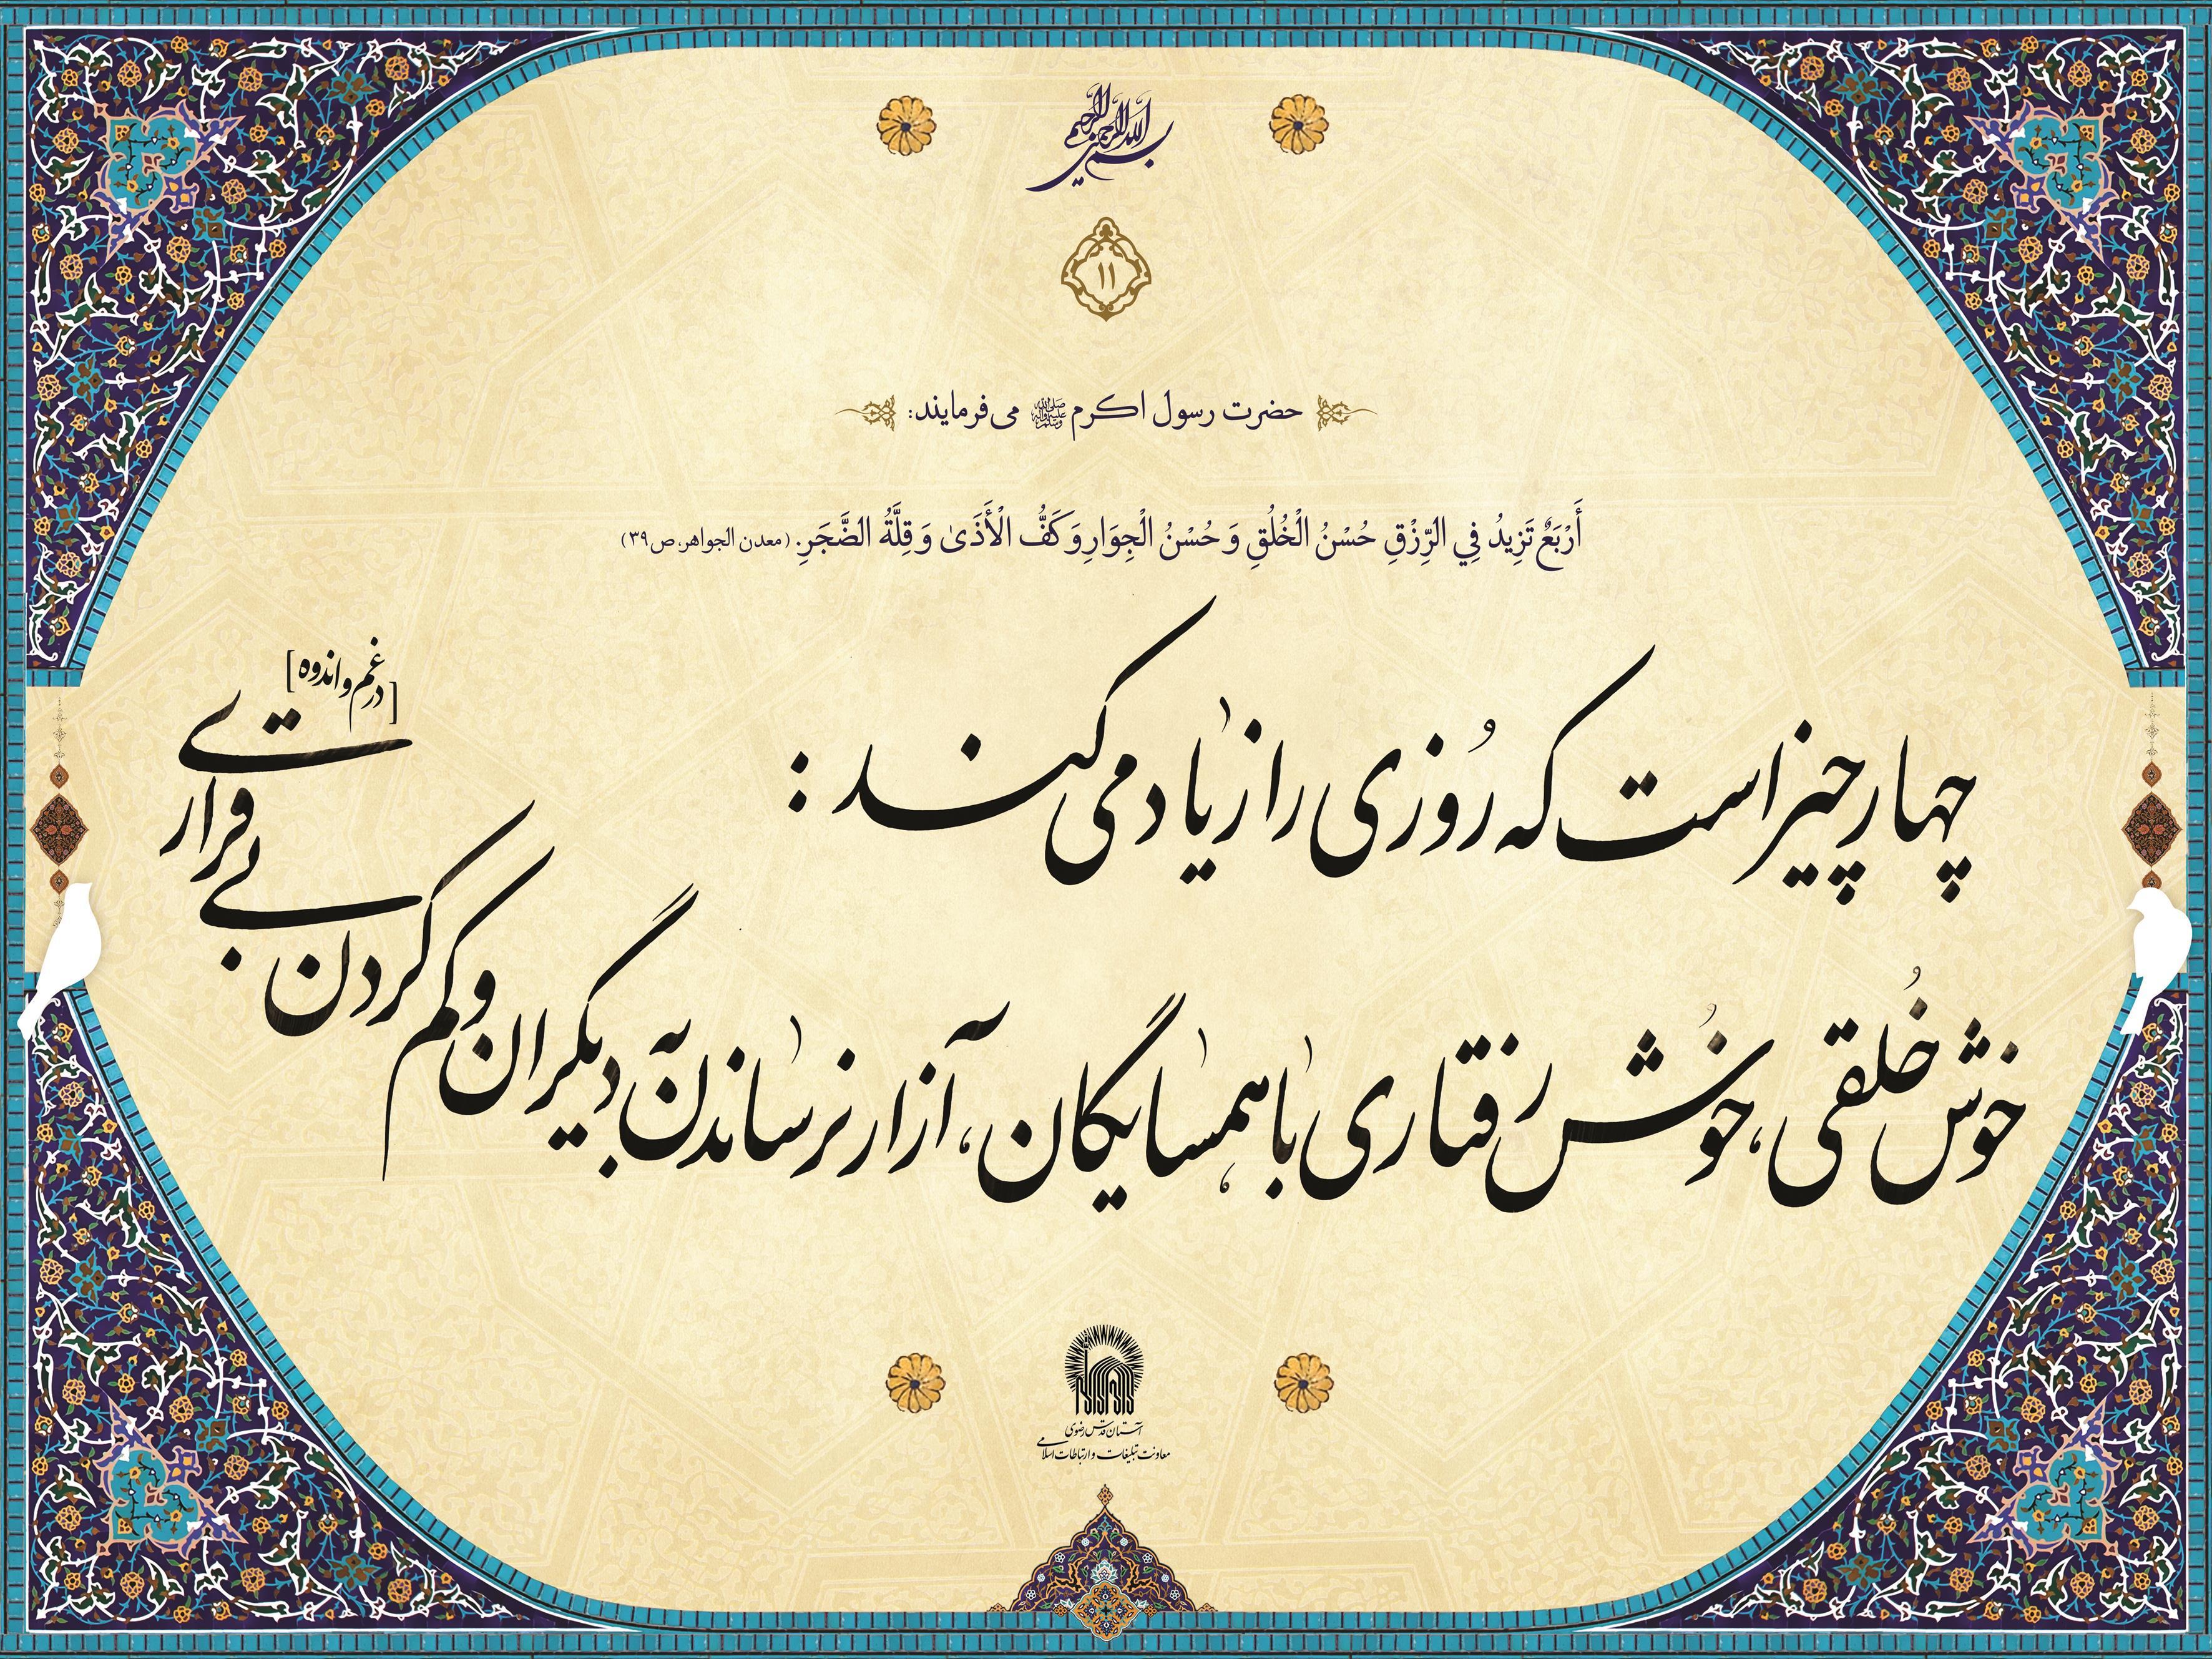 بسم الله الرحمن الرحیم
۱۱
حضرت رسول اکرم ﷺ می‌فرمایند:
أَرْبَعٌ تَزِيدُ فِي الرِّزْقِ حُسْنُ الْخُلُقِ وَ حُسْنُ الْجِوَارِ وَ كَفُّ الْأَذَىٰ وَ قِلَّةُ الضَّجَرِ. (معدن الجواهر، ص۳۹)
چهار چیز است که رُوزی را زیاد می‌کند :
خوش خُلقی، خوُش رفتاری با همسایگان، آزار نرساندن به دیگران و کم کردن بی‌قراری [در غم و اندوه]
آستان قدس رضوی
معاونت تبلیغات و ارتباطات اسلامی